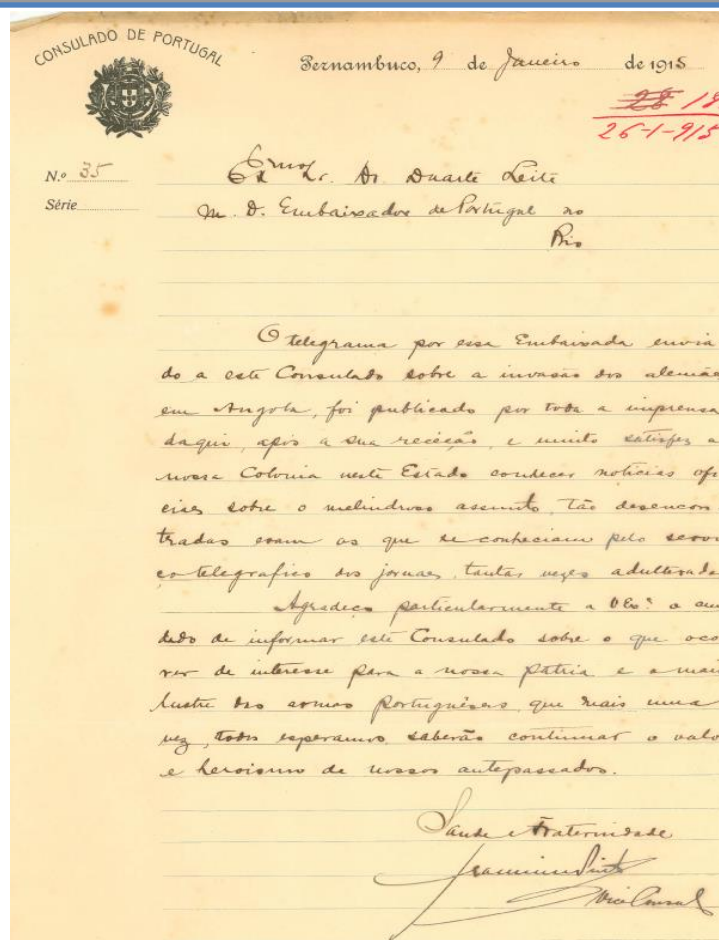 CONSULADO DE PORTUGAL
Pernambuco, 9 de Janeiro de 1915
28 18
26-1-915
N.º 35
Série
Exmo Sr. Dr Duarte Leite
M. D. Embaixador de Portugal no
Rio
O telegrama por essa Embaixada envia
do a este Consulado sobre a invasão dos alemãe
em Angola, foi publicado por toda a imprensa
daqui, após a sua receção, e muito satisfez a
nossa Colonia neste Estado conhecer noticias ofi
ciaes sobre o melindroso assunto, tão desencon
tradas eram as que se conheciam pelo servi
ço telegrafico dos jornaes, tantas vezes adulterada
Agradeço particularmente a VExª o cui
dado de informar este Consulado sobre o que oco
rer de interesse para a nossa patria e o mai
lustre das armas portuguêsas, que mais uma
vez, todos esperamos, saberão continuar o valo
e heroismo de nossos antepassados.
Saude e Fraternidade
Vice Consul